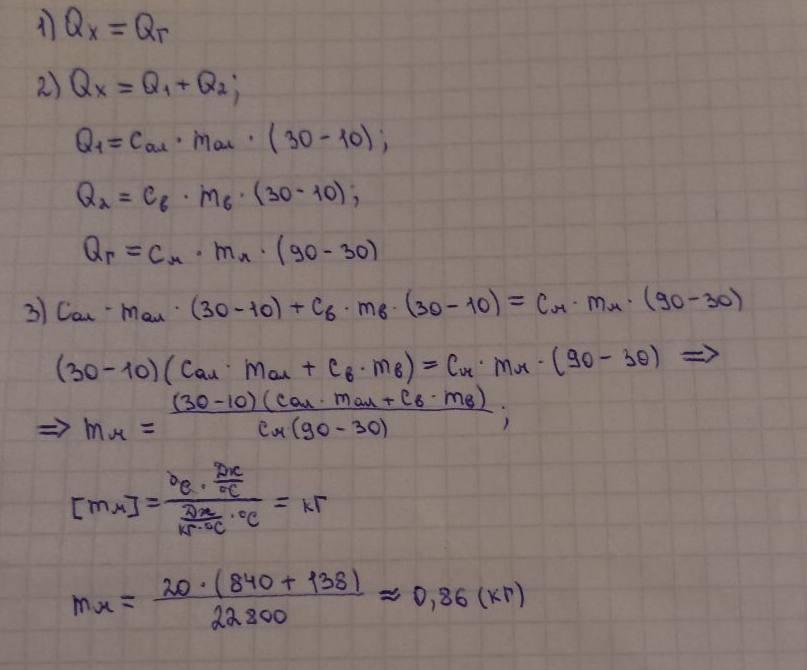 1) Qх = Qг
2) Qх = Q₁ + Q₂;
Q₁ = Cал · mал · (30 - 10);
Q₂ = Cв · mв · (30 - 10);
Qг = Cм · mм · (90 - 30)
3) Cал · mал · (30 - 10) + Cв · mв · (30 - 10) = Cм · mм · (90 - 30)
(30 - 10)(Cал · mал + Cв · mв) = Cм · mм · (90 - 30) =>
=> mм = (30 - 10)(Cал · mал + Cв · mв) / Cм (90 - 30) ;
[mм] = °C · Дж/°C / Дж/кг·°C · °C = кг
mм = 20 · (840 + 138) / 22800 ≈ 0,86 (кг)